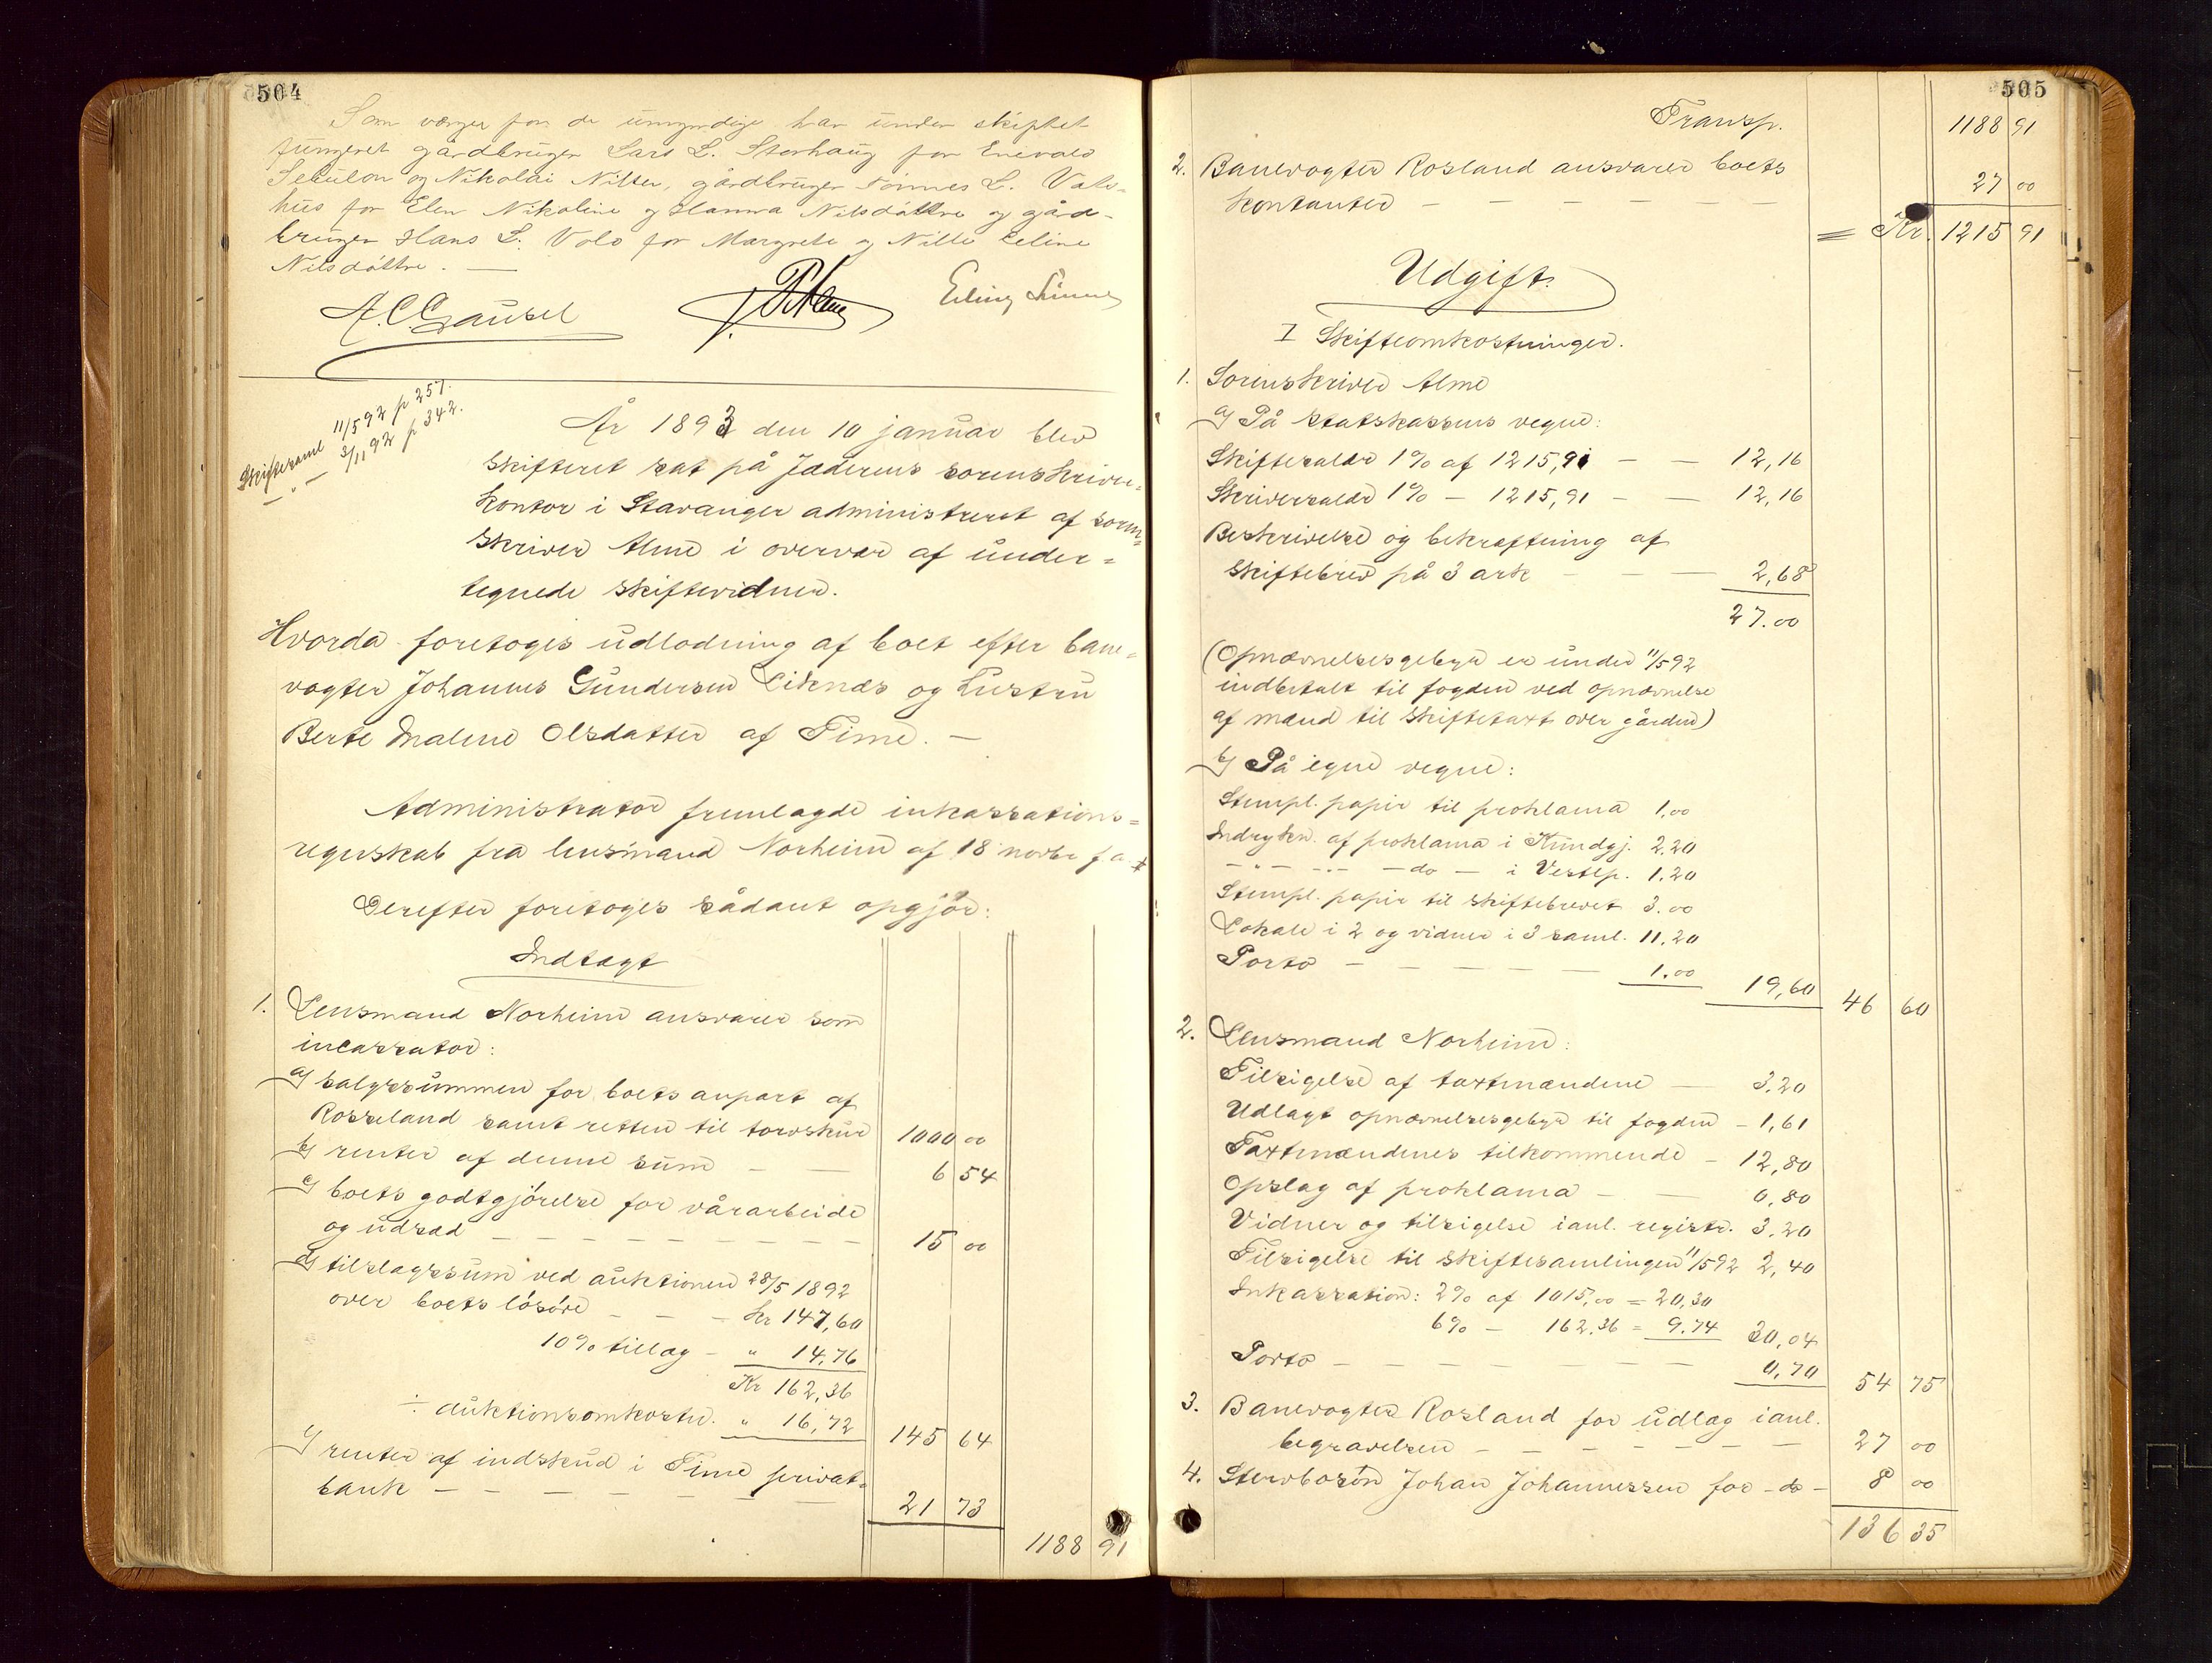 504
Som værger for de umyndige har under skiftet
fungeret gårdbruger Lars L. Storhaug for Enevald
Sebulon og Nikolai Nilsen, gårdbruger Tønnes L. Vold-
hus for Elen Nikoline og Hanna Nilsdøttre og gård-
bruger Hans L. Vold for Margrete og Nille Celine
Nilsdøttre. —
A. C. Gausel
Erling
Skiftesaml 11/5 92 p 257.
— " — 3/11 92 p 342.
År 1893 den 10 januar blev
skifteret sat på Jæderens sorenskriver-
kontor i Stavanger administreret af soren-
skriver Alme i overvær af under-
tegnede skiftevidner.
Hvorda foretoges udlodning af boet efter bane-
vogter Johannes Gundersen Liknæs og hustru
Berte Malene Olsdatter af Time. —
Administrator fremlagde inkassations-
regnskab fra lensmand Norheim af 18 novbr f a
Derefter foretoges sådant opgjør:
Indtægt
1. Lensmand Norheim ansvarer som
incassator:
a) salgssummen for boets anpart af
Rosseland samt retten til torvskur 1000 00
b) renter af denne sum — — 6 54
c) boets godtgjørelse for vårarbeide
og udsæd — — — — — — 15 00
d) tilslagssum ved auktionen 28/5 1892
over boets løsøre — — — Kr 147,60
10% tillæg — " 14,76
Kr 162,36
÷ auktionsomkostn. " 16,72 145 64
e) renter af indskud i Time privat-
bank — — — — — — 21 73
1188 91
505
Transp. 1188 91
2. Banevogter Rosland ansvarer boets
kontanter — — — — — — 27 00
= Kr. 1215 91
Udgift.
I Skifteomkostninger.
1. Sorenskriver Alme
a) På statskassens vegne:
Skiftesalær 1% af 1215,91 — — 12,16
Skriversalær 1% — 1215,91 — — 12,16
Beskrivelse og bekræftning af
skiftebrev på 3 ark — — — 2,68
27.00
(Opnævnelsesgebyr er under 11/5 92
indbetalt til fogden ved opnævnelse
af mænd til skiftetaxt over gården)
b) På egne vegne:
Stempl. papir til proklama 1,00
Indrykn. af proklama i Kundgj. 2.20
— " — — " — — do — i Vestlp. 1.20
Stempl. papir til skiftebrevet 3.00
Lokale i 2 og vidner i 3 saml. 11,20
Porto — — — — — 1.00 19,60 46 60
2. Lensmand Norheim:
Tilsigelse af taxtmændene — 3.20
Udlagt opnævnelsesgebyr til fogden — 1,61
Taxtmændenes tilkommende — 12,80
Opslag af proklama — — 0,80
Vidner og tilsigelse i anl. registr. 3,20
Tilsigelse til skiftesamlingen 11/5 92 2,40
Inkassation: 2% af 1015,00 = 20,30
6% — 162,36 = 9.74 30,04
Porto — — — — — — 0,70 54 75
3. Banevogter Rosland for udlæg i anl.
begravelsen — — — — — — — 27 00
4. Stervbosøn Johan Johannessen for — do — 8 00
136 35